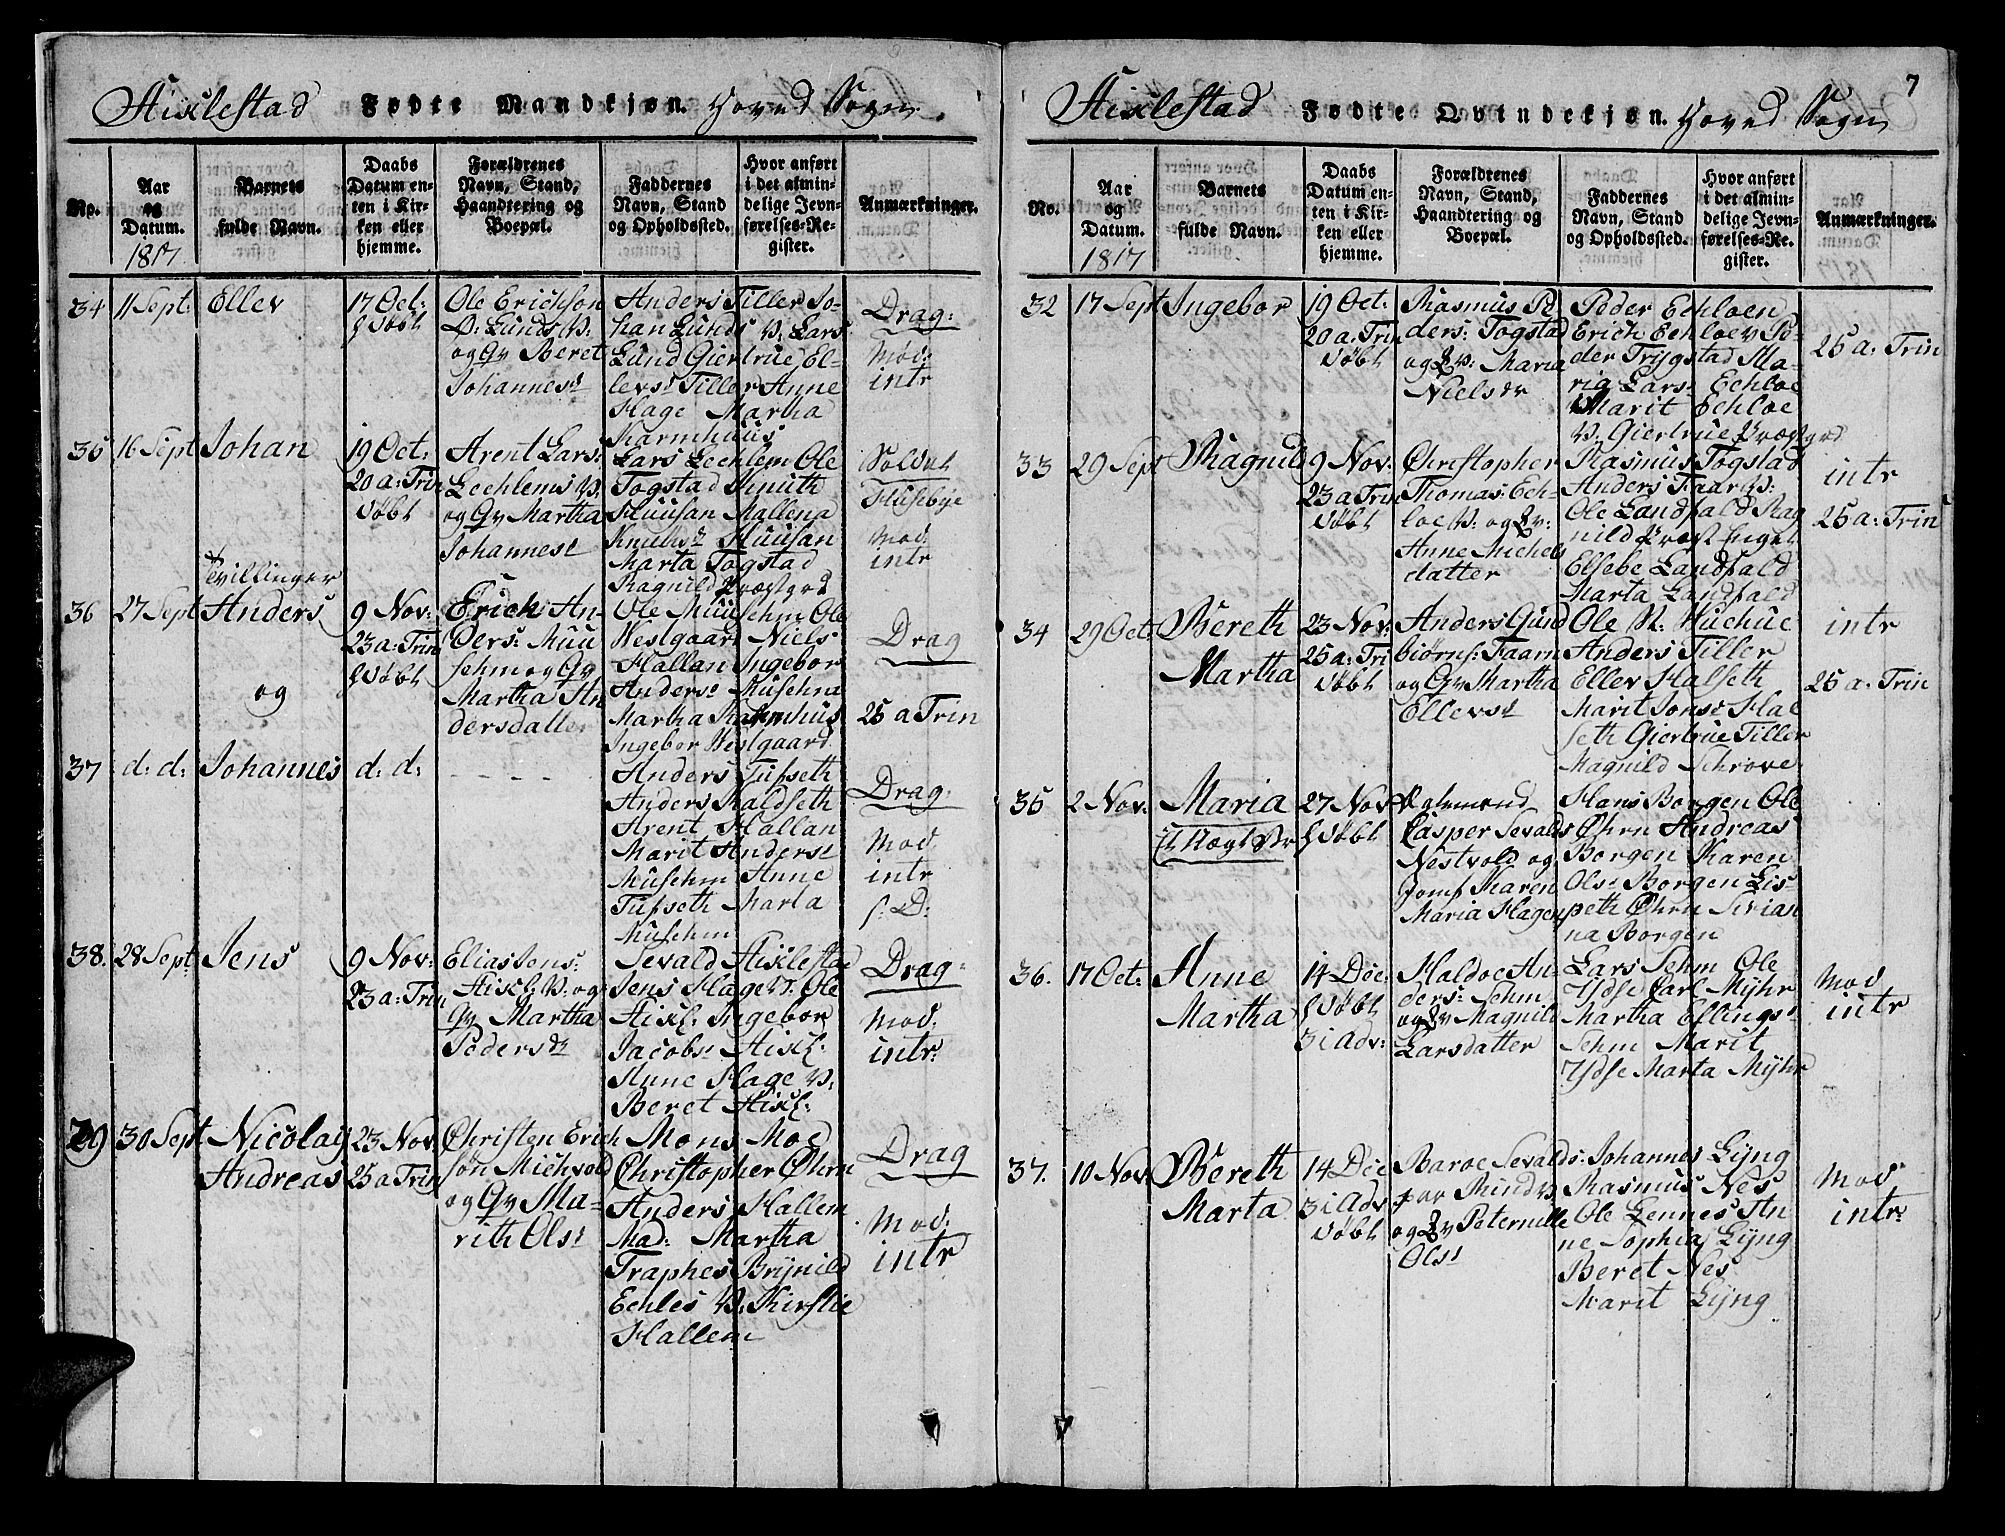 Stixlestad Fødte Mandkjøn. Hoved Sogn.
No.
Aar og Datum.
1817
Barnets fulde Navn.
Daabs Datum enten i Kirken eller hjemme.
Forældrenes Navn, Stand, Haandtering og Boepæl.
Faddernes Navn, Stand og Opholdssted.
Hvor anført i det almindelige Jevnførelses-Register.
Anmærkninger.
34 11 Sept: Ellev
17 Oct:
Ole Erichson
og Gv Beret
Johannesd
Anders Tiller Jo-
han Lunds V: Lars
Lund Giertrue El-
levsd Tiller Anne
Hage Martha
Karmhuus
Drag:
Mod:
intr
35 16 Sept Johan
19 Oct:
20 a: Trin
døbt
Arent Lars:
Lechlems V:
og Gv Martha
Johannesd
Lars Lechlem Ole
Togstad Knuth
Huusan Mallena
Knudsd Huusan
Marta Togstad
Ragnild Præstgrd
Soldat
Husebye
Mod
intr
Tvillinger
36 27 Sept Anders
og
9 Nov:
23 a: Trin
Erich An-
ders: Muu
sehm og Gv
Martha An
dersdatter
Ole Muusehm Ole
Westgaar Niels
Hallan Ingebor
Andersd Musehm
Martha Karmhus
Ingebor Westgaard
Drag
25 a Trin
37 d: d: Johannes d: d: - - - -
Anders Tufseth
Anders Kaldseth
Arent Hallan
Marit Andersd
Musehm Anne
Tufseth Marta
Musehm
Drag:
Mod
intr
s: D:
38. 28 Sept Jens
9 Nov:
23 a: Trin
Elias Jens:
Stixl: V: og
Gv Martha
Pedersdr
Sevald Stixlestad
Jens Hage V: Ole
Stixl: Ingebor
Jacobsd Stixl:
Anne Hage V:
Beret Stixl:
Drag:
Mod:
intr:
39 30 Sept Nicolay
Andreas
23 Nov.
25 a Trin
Christen Erich
søn Michvold
og Gv Ma-
rith Olsd
Mons Moe
Christopher Øhrn
Anders Hallem
Mad: Martha
Traphes Brynild
Echles V: Kirstie
Hallem
Drag
Mod:
intr
7
Stixlestad Fødte Qvindekjøn. Hoved Sogn
No.
Aar og Datum.
1817
Barnets fulde Navn.
Daabs Datum enten i Kirken eller hjemme.
Forældrenes Navn, Stand, Haandtering og Boepæl.
Faddernes Navn, Stand og Opholdssted.
Hvor anført i det almindelige Jevnførelses-Register.
Anmærkninger.
32 17 Sept Ingebor
19 Oct:
20 a: Trin
døbt
Rasmus Pe
ders: Togstad
og Gv: Maria
Nielsdr
Peder Echloen
Erich Echloe V Pe-
der Trygstad Ma-
ria Lars: Echloe
Marit Echloe
V: Giertrue Præstgrd
25 a: Trin
33 29 Sept Magnild
9 Nov:
23 a Trin
døbt
Christopher
Thomas: Ech-
loe V: og Gv:
Anne Michels
datter
Rasmus Togstad
Anders Faar V:
Ole Landfald Rag
nild Præst Enget
Elsebe Landfald
Marta Landfald
intr
25 a: Trin
34 29 Oct: Bereth
Martha
23 Nov:
25 a: Tri
døbt
Anders Gund
biørns: Faarn
og Gv Martha
Ellevsd
Ole N: Huehue
Anders Tiller
Ellev Halseth
Marit Jonsd Hal
seth Giertrue Tiller
Magnild Schrove
intr
25 a: Trin
35 2 Nov: Maria
27 Nov
Casper Sevalds
Nestvold og
Jomf Karen
Maria Hagen
Hans Borgen Ole
Øhrn Andreas
Borgen Karen
Olsd Borgen Lis-
peth Øhrn Sirian
na Borgen
36. 17 Oct: Anne
Martha
14 Dec
3 i Adv:
Haldoe An-
ders: Sehm
og Gv Magnild
Larsdatter
Lars Sehm Ole
Ydse Carl Myhr
Martha Ellingsd
Sehm Marit
Ydse Marta Myhr
Mod
intr
37. 10 Nov: Bereth
Marta
14 Dec
3 i Adv
døbt
Baroe Sevalds:
Rind V:
og Gv Peternille
Olsd
Johannes Lyng
Rasmus Nes
Ole Lennes An
ne Sophia Lyng
Beret Nes
Marit Lyng
Mod
intr: